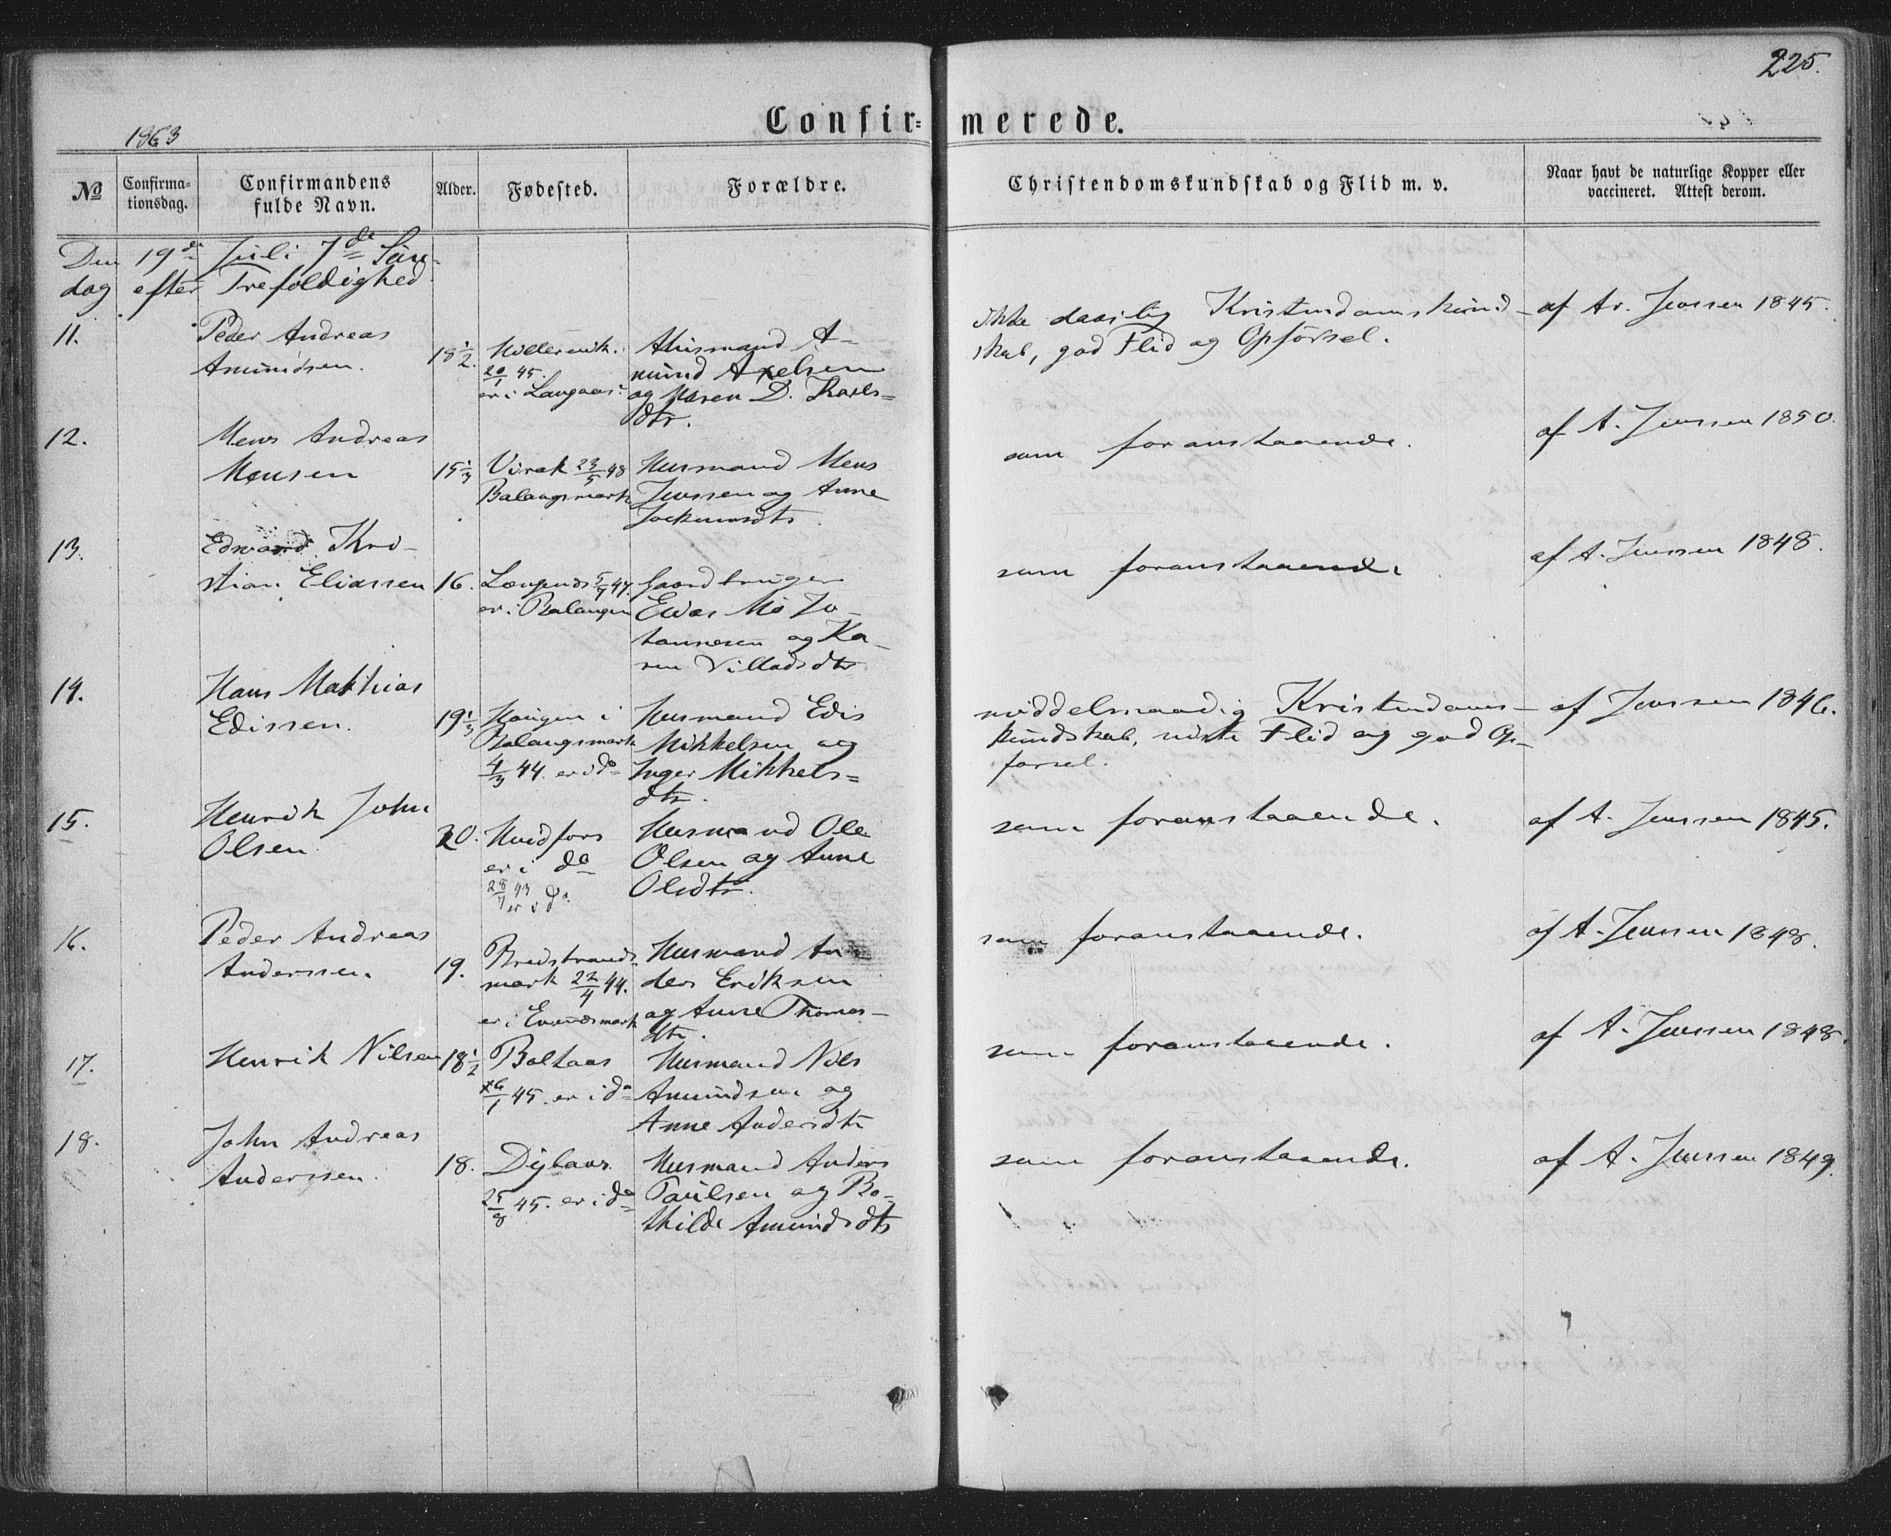 225.
1863
Confir= merede.
No
Confirma-
tionsdag.
Confirmandens
fulde Navn.
Alder.
Fødested.
Forældre.
Christendomskundskab og Flid m. v.
Naar havt de naturlige Kopper eller
vaccineret. Attest derom.
Den 19de Juli 7de Søn-
dag efter Trefoldighed
11.
Peder Andreas
Amundsen.
18 1/2.
20/1 45.
er i Langaas
Husmand A-
mund Axelsen
og Maren D. Karls=
dtr.
Ikke daarlig Kristendomskund-
skab, god Flid og Opførsel.
af Ar. Jenssen 1845.
12.
Mens Andreas
Mensen
15 1/3
Virak 23/5 48
Balangsmark
Husmand Mens
Jenssen og Anne
som foranstaaende.
af A. Jenssen 1850.
13.
Edvard Kri-
stian Eliassen
16.
47.
er i Balangen
Gaardbruger
Elias Mø Jo-
hannesen og Ka-
ren Villadsdtr
som foranstaaende.
af A. Jenssen 1848.
14.
Hans Mathias
Edissen.
19 1/3
Haugen i
Balangsmark
4/3 44. er i do
Husmand Edis
Mikkelsen og
Inger Mikkels=
dtr.
middelmaadig Kristendoms-
kundskab, Flid og god Op-
førsel.
af Jenssen 1846.
15.
Henrik John
Olsen
20.
Hvidfors
er i do
28/7 43
er i do
Husmand Ole
Olsen og Anne
Olsdtr.
som foranstaaende.
af A. Jenssen 1845.
16.
Peder Andreas
Anderssen.
19.
Bredstrands-
mark 22/4 44.
er i Evendsmark
Husmand An-
ders Eriksen
og Anne Thomas-
dtr.
som foranstaaende.
af A. Jenssen 1848.
17.
Henrik Nilsen
18 1/2
Boltaas
45. er i do
Husmand Nils
Amundsen og
Anne Andersdtr
som foranstaaende.
af A. Jenssen 1848.
18.
John Andreas
Anderssen.
18.
25/8 45. er i do
Husmand Anders
Paulsen og Bo-
thilde Amundsdtr
som foranstaaende.
af A. Jenssen 1849.